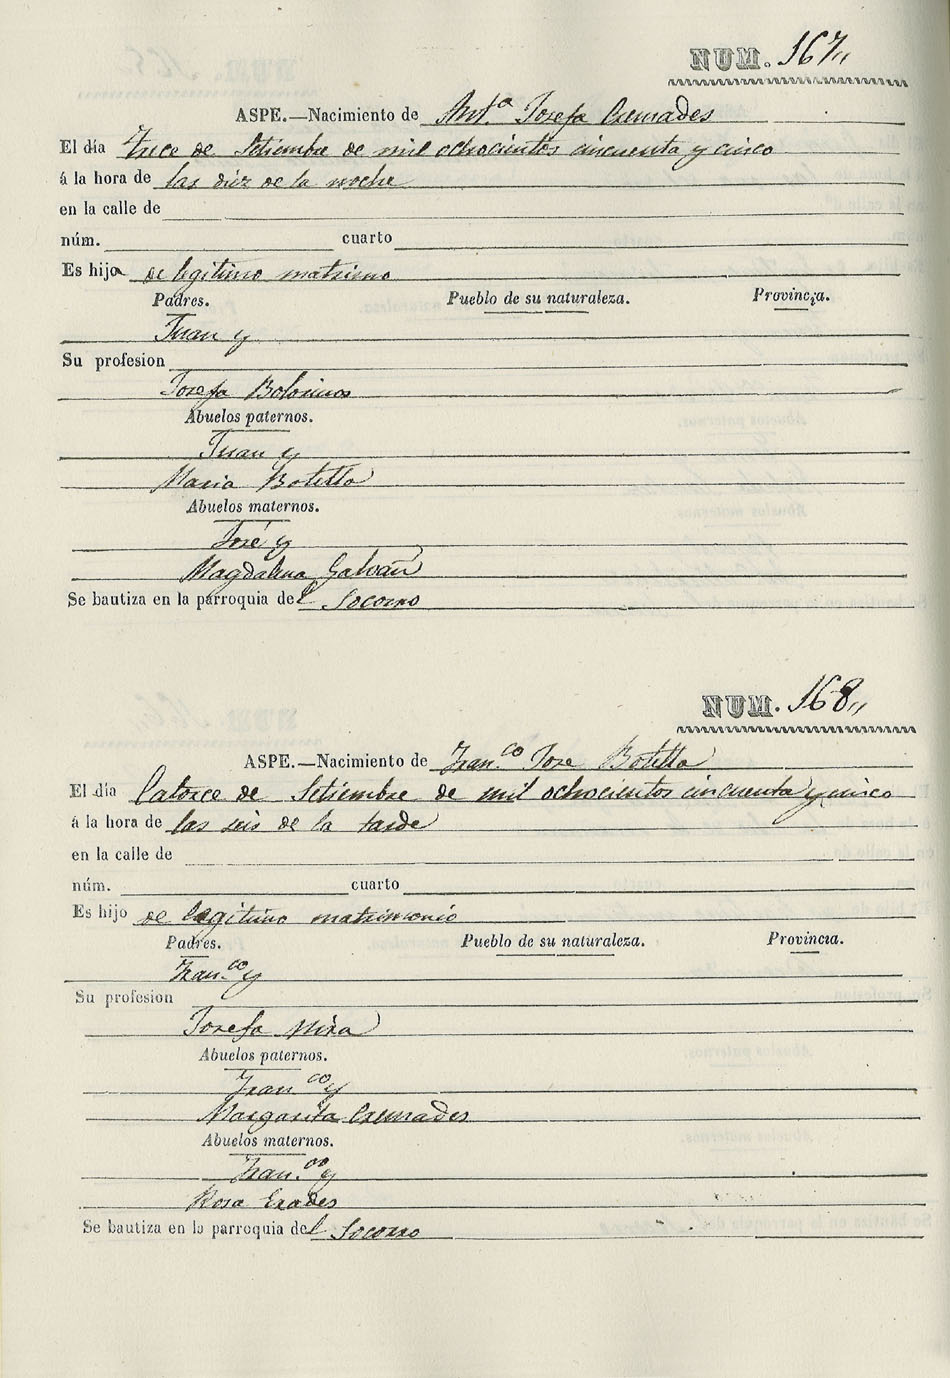 NUM. 167,,
ASPE.—Nacimiento de Ant.ª Josefa Cremades
El día trece de Setiembre de mil ochocientos cincuenta y cinco
á la hora de las diez de la noche
en la calle de
núm. cuarto
Es hija de legítimo matrimo
Padres. Pueblo de su naturaleza. Provincia.
Juan y
Su profesion
Josefa Bolorinos
Abuelos paternos.
Juan y
Maria Botella
Abuelos maternos.
José y
Magdalena Galvañ
Se bautiza en la parroquia del Socorro
NUM. 168,,
ASPE.—Nacimiento de Fran.co Jose Botella
El día Catorce de Setiembre de mil ochocientos cincuenta y cinco
á la hora de las seis de la tarde
en la calle de
núm. cuarto
Es hijo de legitimo matrimonio
Padres. Pueblo de su naturaleza. Provincia.
Fran.co y
Su profesion
Josefa Mira
Abuelos paternos.
Fran.co y
Margarita Cremades
Abuelos maternos.
Fran.co y
Rosa Erades
Se bautiza en la parroquia del Socorro